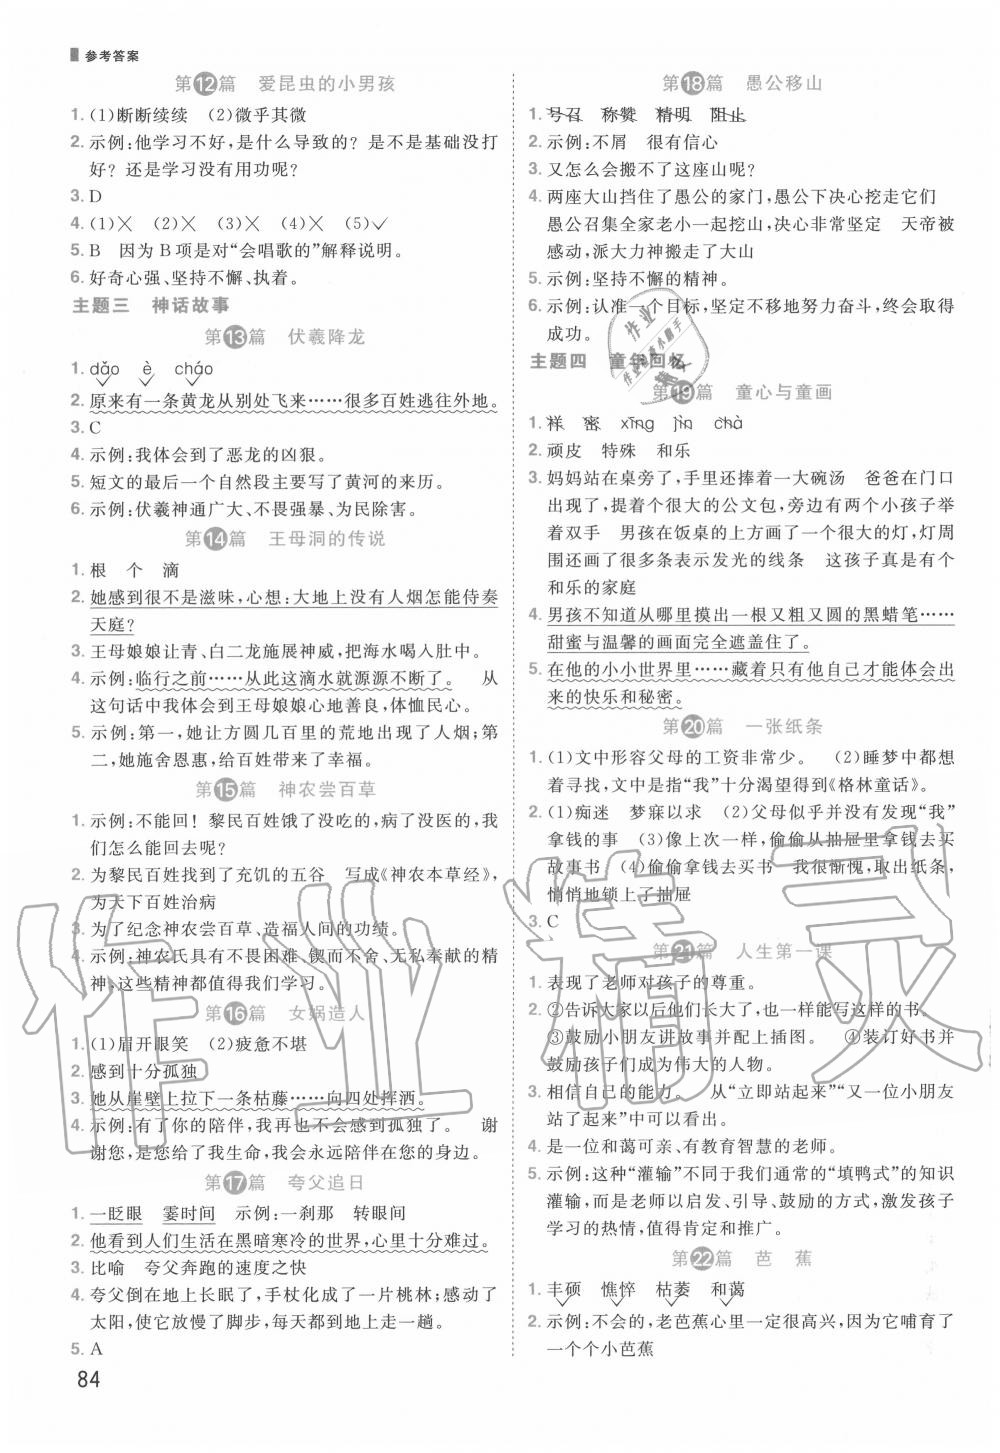 参考答案
第12篇 爱昆虫的小男孩
1. (1)断断续续 (2)微乎其微
2. 示例:他学习不好,是什么导致的？是不是基础没打
好？还是学习没有用功呢？
3. D
4. (1)╳ (2)╳ (3)╳ (4)╳ (5)✓
5. B 因为B项是对“会唱歌的”解释说明。
6. 好奇心强、坚持不懈、执着。
主题三 神话故事
第13篇 伏羲降龙
1. dǎo è cháo
2. 原来有一条黄龙从别处飞来……很多百姓逃往外地。
3. C
4. 示例:我体会到了恶龙的凶狠。
5. 短文的最后一个自然段主要写了黄河的来历。
6. 示例:伏羲神通广大、不畏强暴、为民除害。
第14篇 王母洞的传说
1. 根 个 滴
2. 她感到很不是滋味,心想:大地上没有人烟怎能侍奏
天庭?
3. 王母娘娘让青、白二龙施展神威,把海水喝入肚中。
4. 示例:临行之前……从此这滴水就源源不断了。 从
这句话中我体会到王母娘娘心地善良,体恤民心。
5. 示例:第一,她让方圆几百里的荒地出现了文明；第
二,她施舍恩惠,给百姓带来了幸福。
第15篇 神农尝百草
1. 示例:不能回！黎民百姓饿了没吃的,病了没医的,我
们怎么能回去呢?
2. 为黎民百姓找到了充饥的五谷 写成《神农本草经》,
为天下百姓治病
3. 为了纪念神农尝百草、造福人间的功绩。
4. 示例:神农氏具有不畏困难、锲而不舍、无私奉献的精
神,这些精神都值得我们学习。
第16篇 女娲造人
1. (1)眉开眼笑 (2)疲惫不堪
2. 感到十分孤独
3. 她从崖壁上拉下一条枯藤……向四处挥洒。
4. 示例:有了你的陪伴,我再也不会感到孤独了。 谢
谢您,您给了我生命,我会永远陪伴在你的身边。
第17篇 夸父追日
1. 一眨眼 霎时间 示例:一刹那 转眼间
2. 他看到人们生活在黑暗寒冷的世界,心里十分难过。
3. 比喻 夸父奔跑的速度之快
4. 夸父倒在地上长叹,手杖化成了一片桃林,感动了
太阳,使它放慢了脚步,每天从地上走一趟。
5. A
84
第18篇 愚公移山
1. 号召 称赞 精明 阻止
2. 示例:不屑 很有信心
3. 又怎么会搬不了这座山呢？
4. 两座大山挡住了愚公的家门,愚公下决心挖走它们
愚公召集全家老小一起挖山,决心非常坚定 天帝被
感动,派大力神搬走了大山
5. 示例:坚持不懈的精神。
6. 示例:认准一个目标,坚定不移地努力奋斗,终会取得
成功。
主题四 童年回忆
第19篇 童心与童画
1. 祥 密 xīng jìn chà
2. 顽皮 特殊 和乐
3. 妈妈站在桌旁了,手里还捧着一大碗汤 爸爸在门口
出现了,提着个很大的公文包,旁边有两个小孩子举
着双手 男孩在饭桌的上方画了一个很大的灯,灯周
围还画了很多条表示发光的线条 这孩子真是有个
和乐的家庭
4. 男孩不知道从哪里摸出一根又粗又圆的黑蜡笔……
甜蜜与温馨的画面完全遮盖住了。
5. 在他的小小世界里……藏着只有他自己才能体会出
来的快乐和秘密。
第20篇 一张纸条
1. (1)文中形容父母的工资非常少。 (2)睡梦中都想
着寻找,文中是指“我”十分渴望得到《格林童话》。
2. (1)痴迷 梦寐以求 (2)父母似乎并没有发现“我”
拿钱的事 (3)像上次一样,偷偷从抽屉里拿钱去买
故事书 (4)偷偷拿钱去买书 我很惭愧,取出纸条,
悄悄地锁上了抽屉
3. C
第21篇 人生第一课
1. 表现了老师对孩子的尊重。
2. ②告诉大家以后他们长大了,也一样能写这样的书。
③鼓励小朋友讲故事并配上插图。 ④装订好书并
鼓励孩子们成为伟大的人物。
3. 相信自己的能力。 从“立即站起来”“又一位小朋友
站了起来”中可以看出。
4. 是一位和蔼可亲、有教育智慧的老师。
5. 示例:这种“灌输”不同于我们通常的“填鸭式”的知识
灌输,而是老师以启发、引导、鼓励的方式,激发孩子
学习的热情,值得肯定和推广。
第22篇 芭 蕉
1. 丰硕 憔悴 枯萎 和蔼
2. 示例:不会的,老芭蕉心里一定很高兴,因为它哺育了
一个个小芭蕉
作业精灵